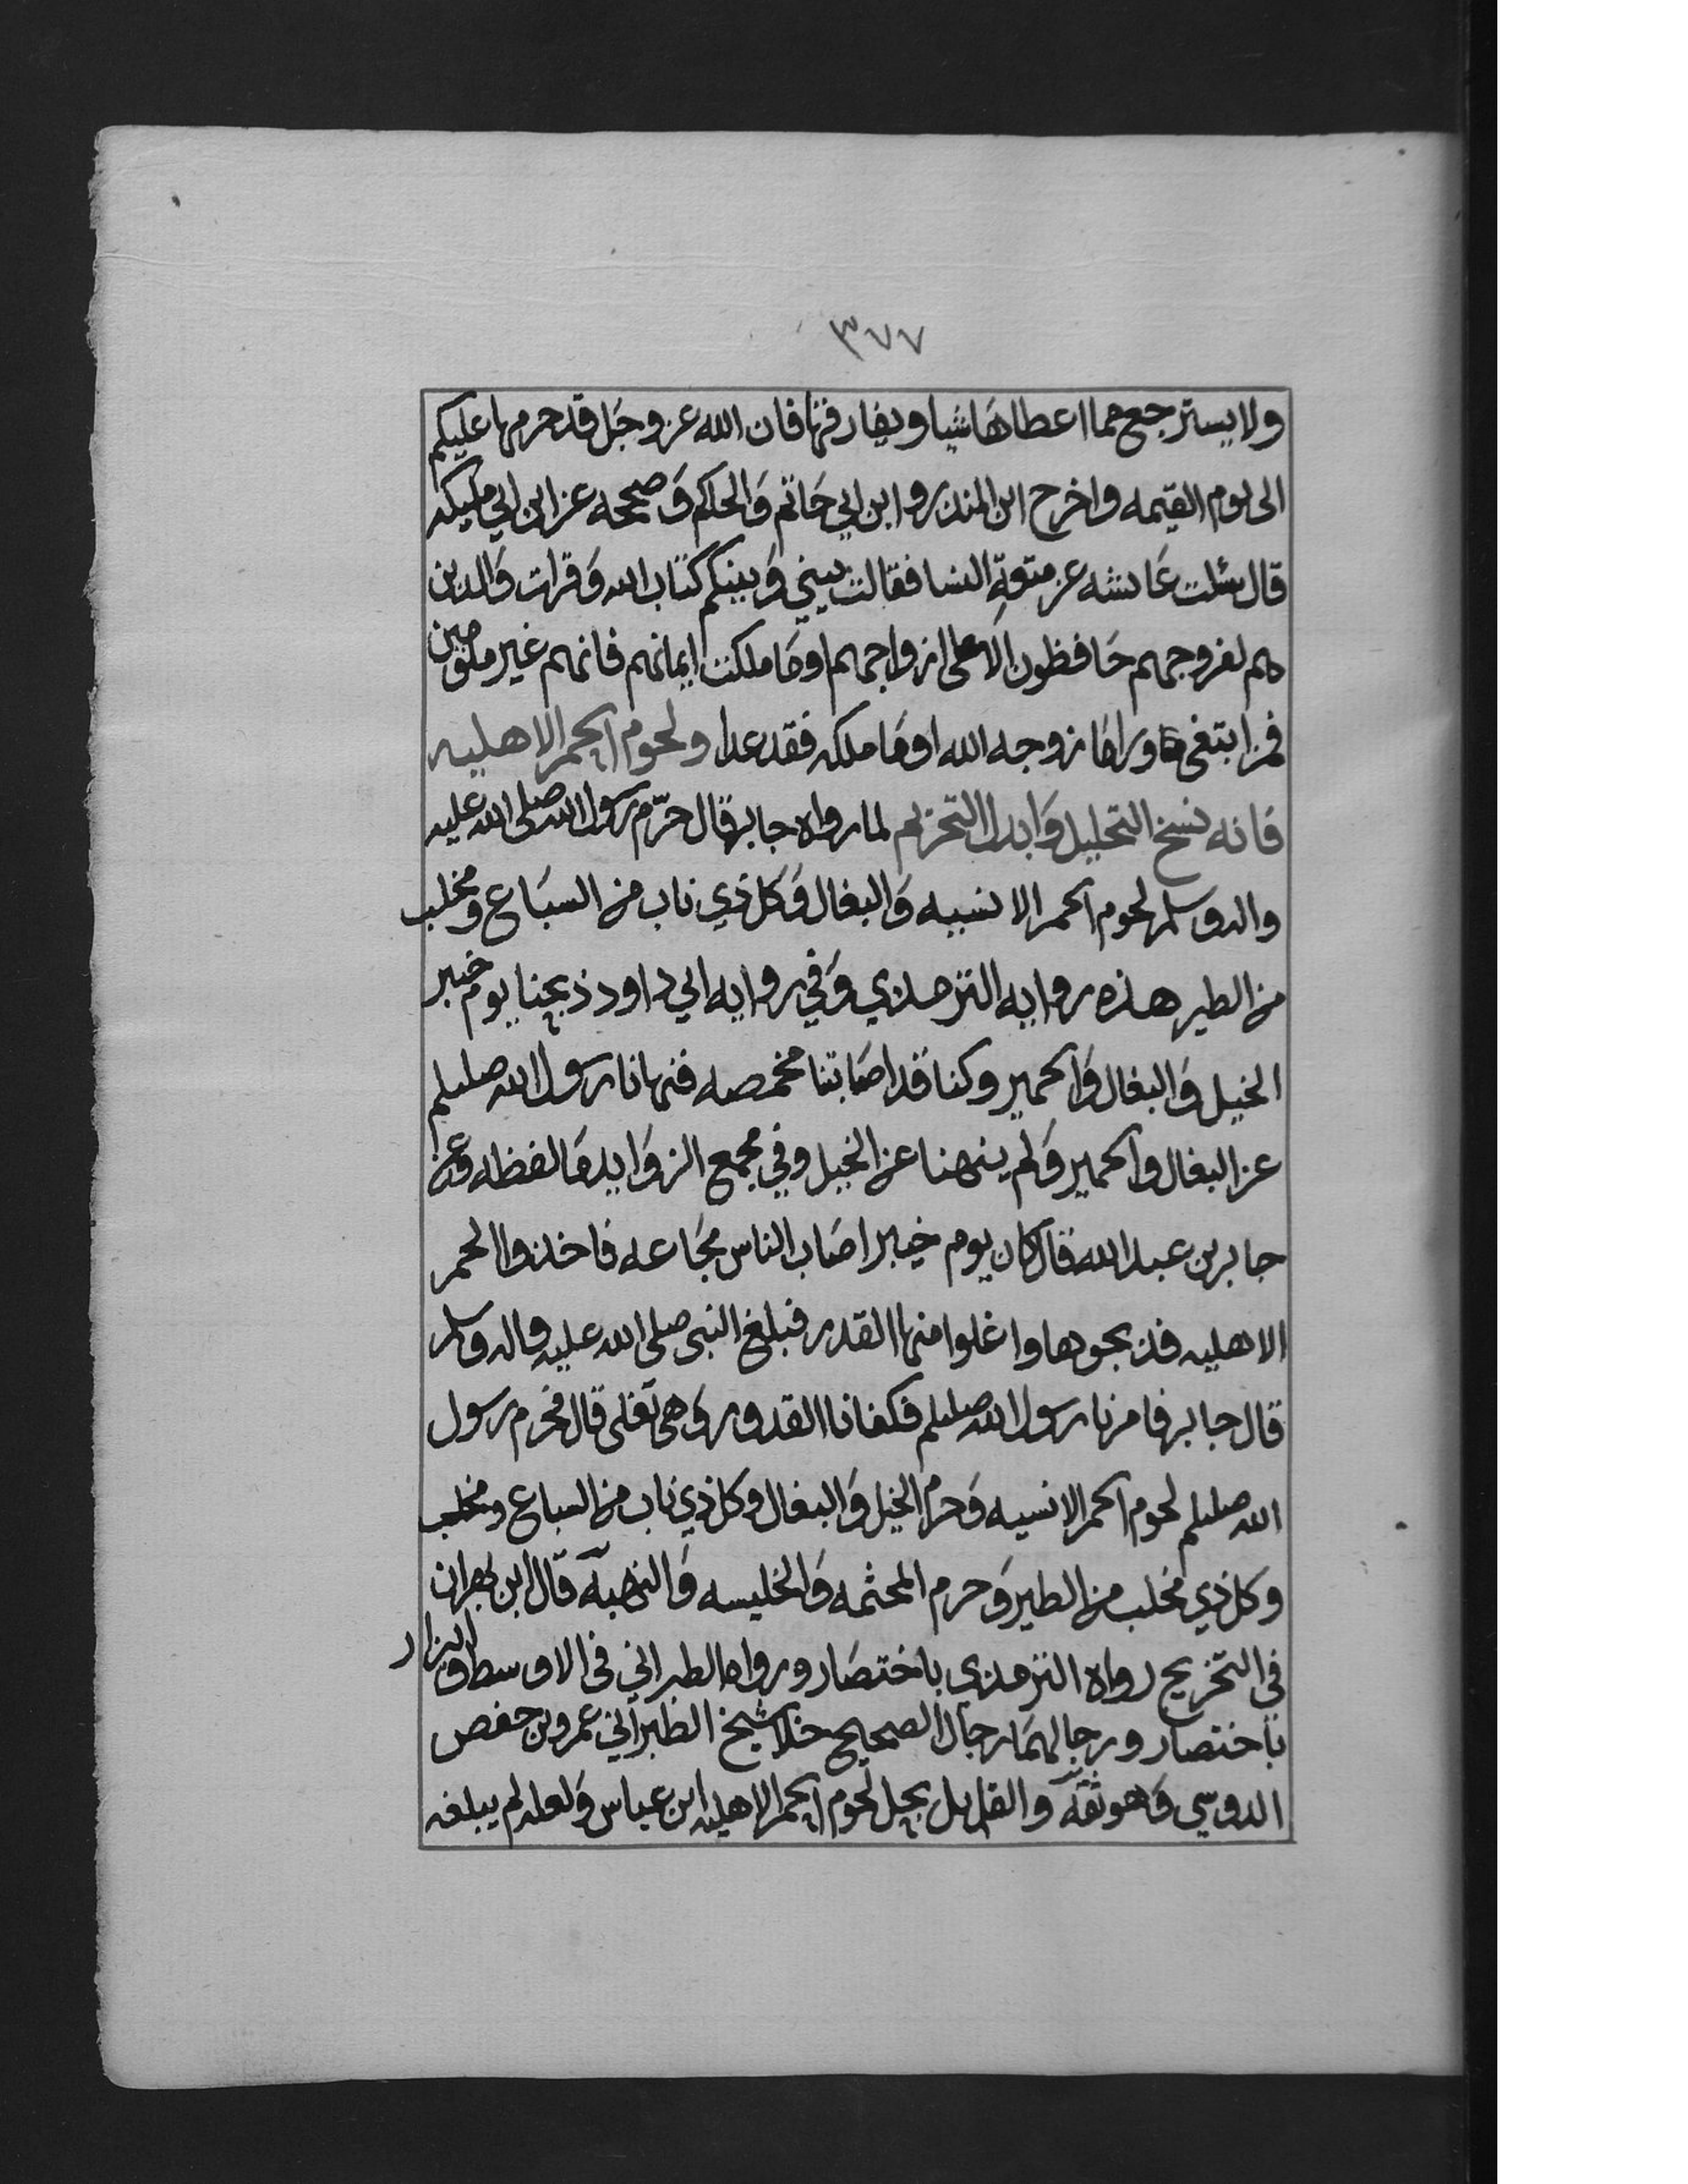 ٣٧٧
ولا يسترجع مما اعطاها شيا ويفارقها فان الله عز وجل قد حرمها عليكم
الى يوم القيمه واخرج ابن المنذر وابن ابي حاتم والحاكم وصححه عن ابن ابي مليكه
قال سئلت عايشه عن متعة النسا فقالت بيني وبينكم كتاب الله وقرات والذين
هم لفروجهم حافظون الا على ازواجهم او ما ملكت ايمانهم فانهم غير ملومين
فمن ابتغى ورا ما زوجه الله او ما ملكه فقد عدا ولحوم الحمر الاهليه
فانه نسخ التحليل وابدل التحريم لما رواه جابر قال حرّم رسول الله صلى الله عليه
واله وسلم لحوم الحمر الانسيه والبغال وكل ذي ناب من السباع ومخلب
من الطير هذه روايه الترمذي وفي روايه ابي داود ذبحنا يوم خيبر
الخيل والبغال والحمير وكنا قد اصابتنا مخمصه فنهانا رسول الله صللم
عن البغال والحمير ولم ينهنا عن الخيل وفي مجمع الزوايد ما لفظه وعن
جابر بن عبد الله قال كان يوم خيبر اصاب الناس مجاعه فاخذوا الحمر
الاهليه فذبحوها واغلوا منها القدر فبلغ النبي صلى الله عليه واله وسلم
قال جابر فامرنا رسول الله صللم فكفانا القدور وهي تغلى قال فحرم رسول
الله صللم لحوم الحمر الانسيه وحرم الخيل والبغال وكل ذي ناب من السباع ومخلب
وكل ذي مخلب من الطير وحرم المجثمه والخليسه والنهبة قال ابن بهران
في التخريج رواه الترمذي باختصار ورواه الطبراني في الاوسط والبزار
باختصار ورجالهما رجال الصحيح خلا شيخ الطبراني عمرو بن حفص
الدوسي وهو ثقة والقايل بحل لحوم الحمر الاهليه ابن عباس ولعله لم يبلغه